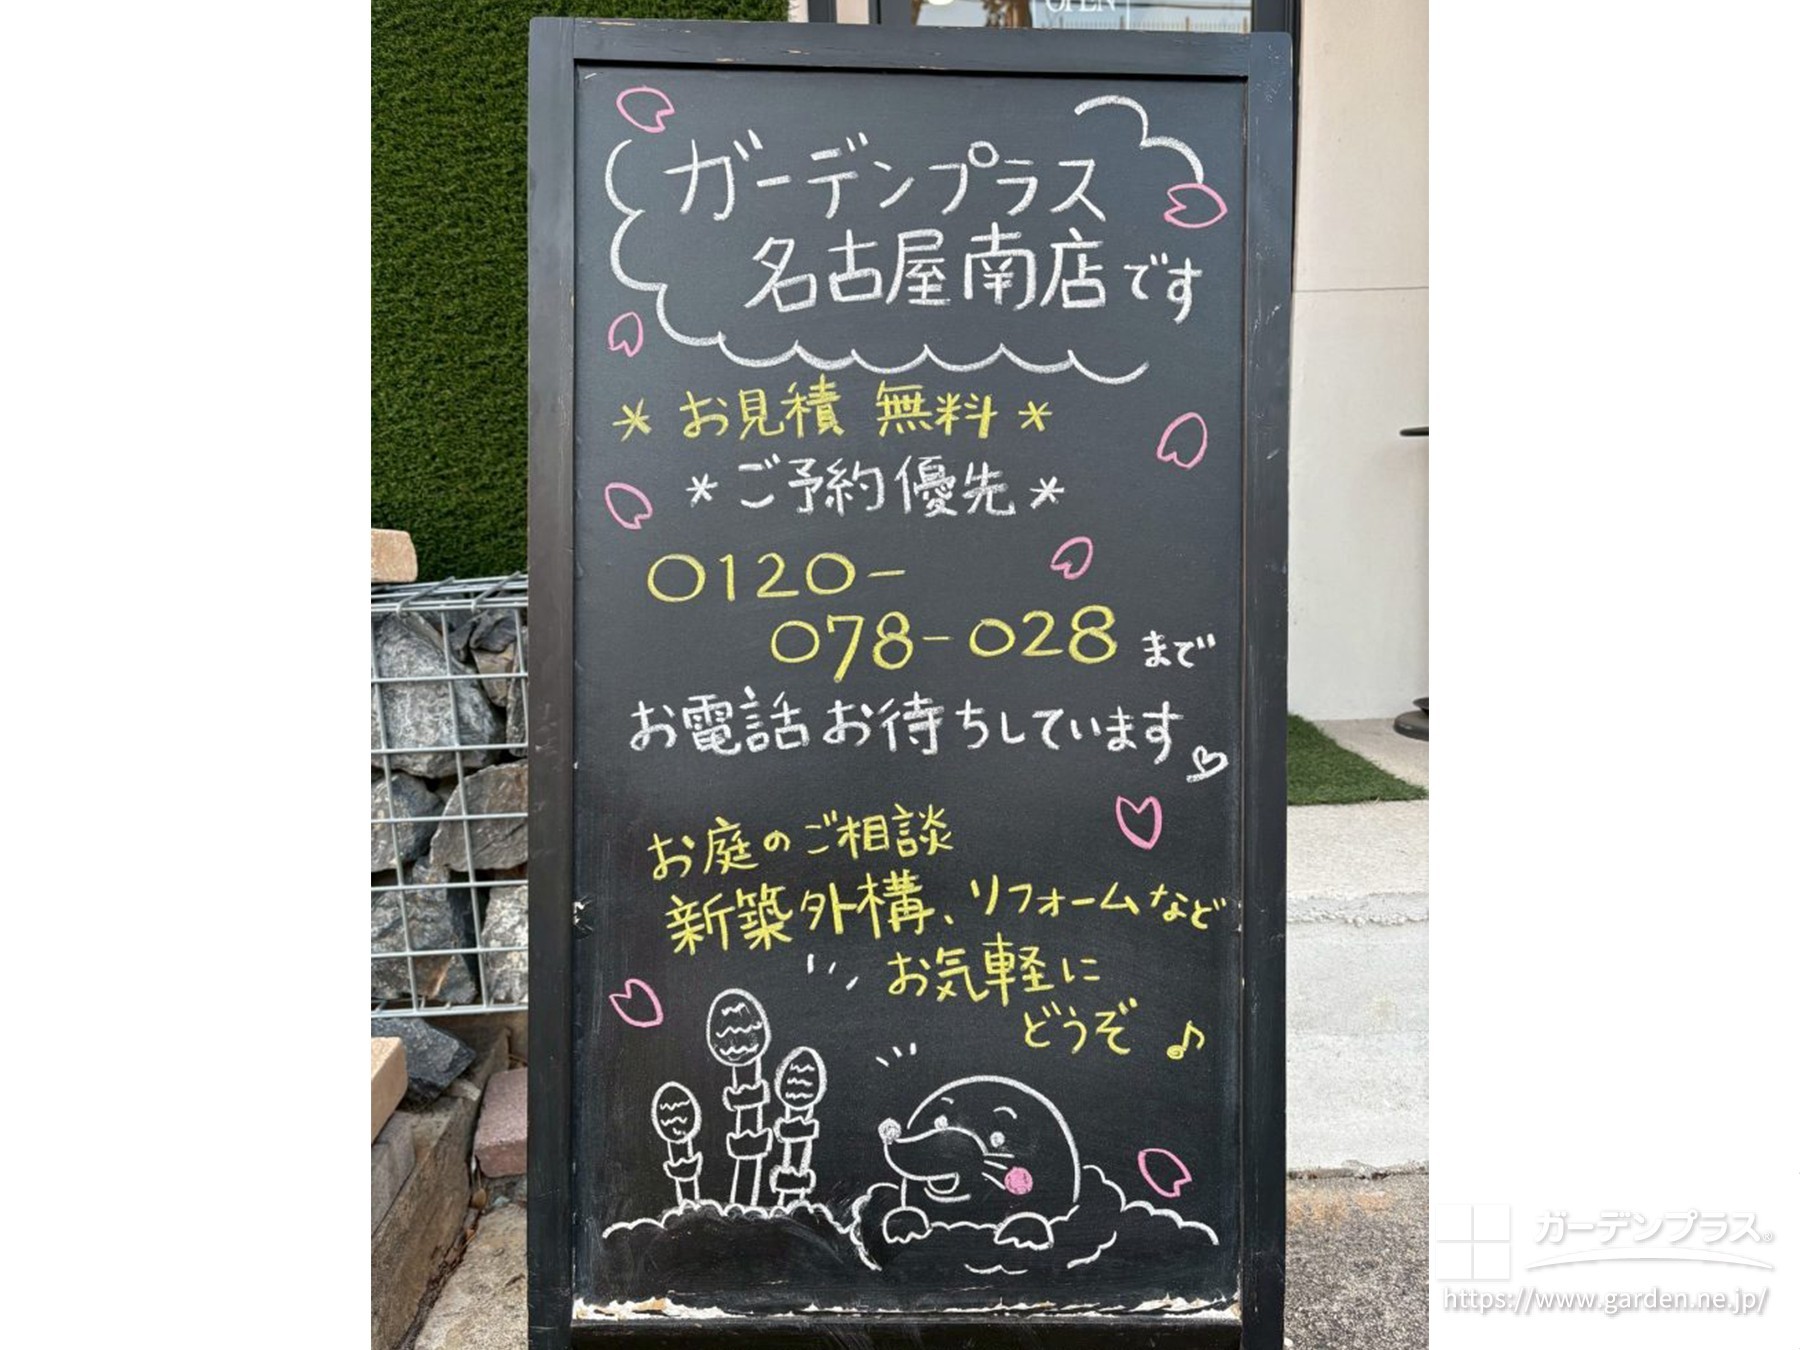 OPEN
ガーデンプラス
名古屋南店です
* お見積 無料 *
* ご予約優先 *
0120-
078-028 まで
お電話お待ちしています
お庭のご相談
新築外構、リフォームなど
お気軽に
どうぞ♪
ガーデンプラス®
https://www.garden.ne.jp/